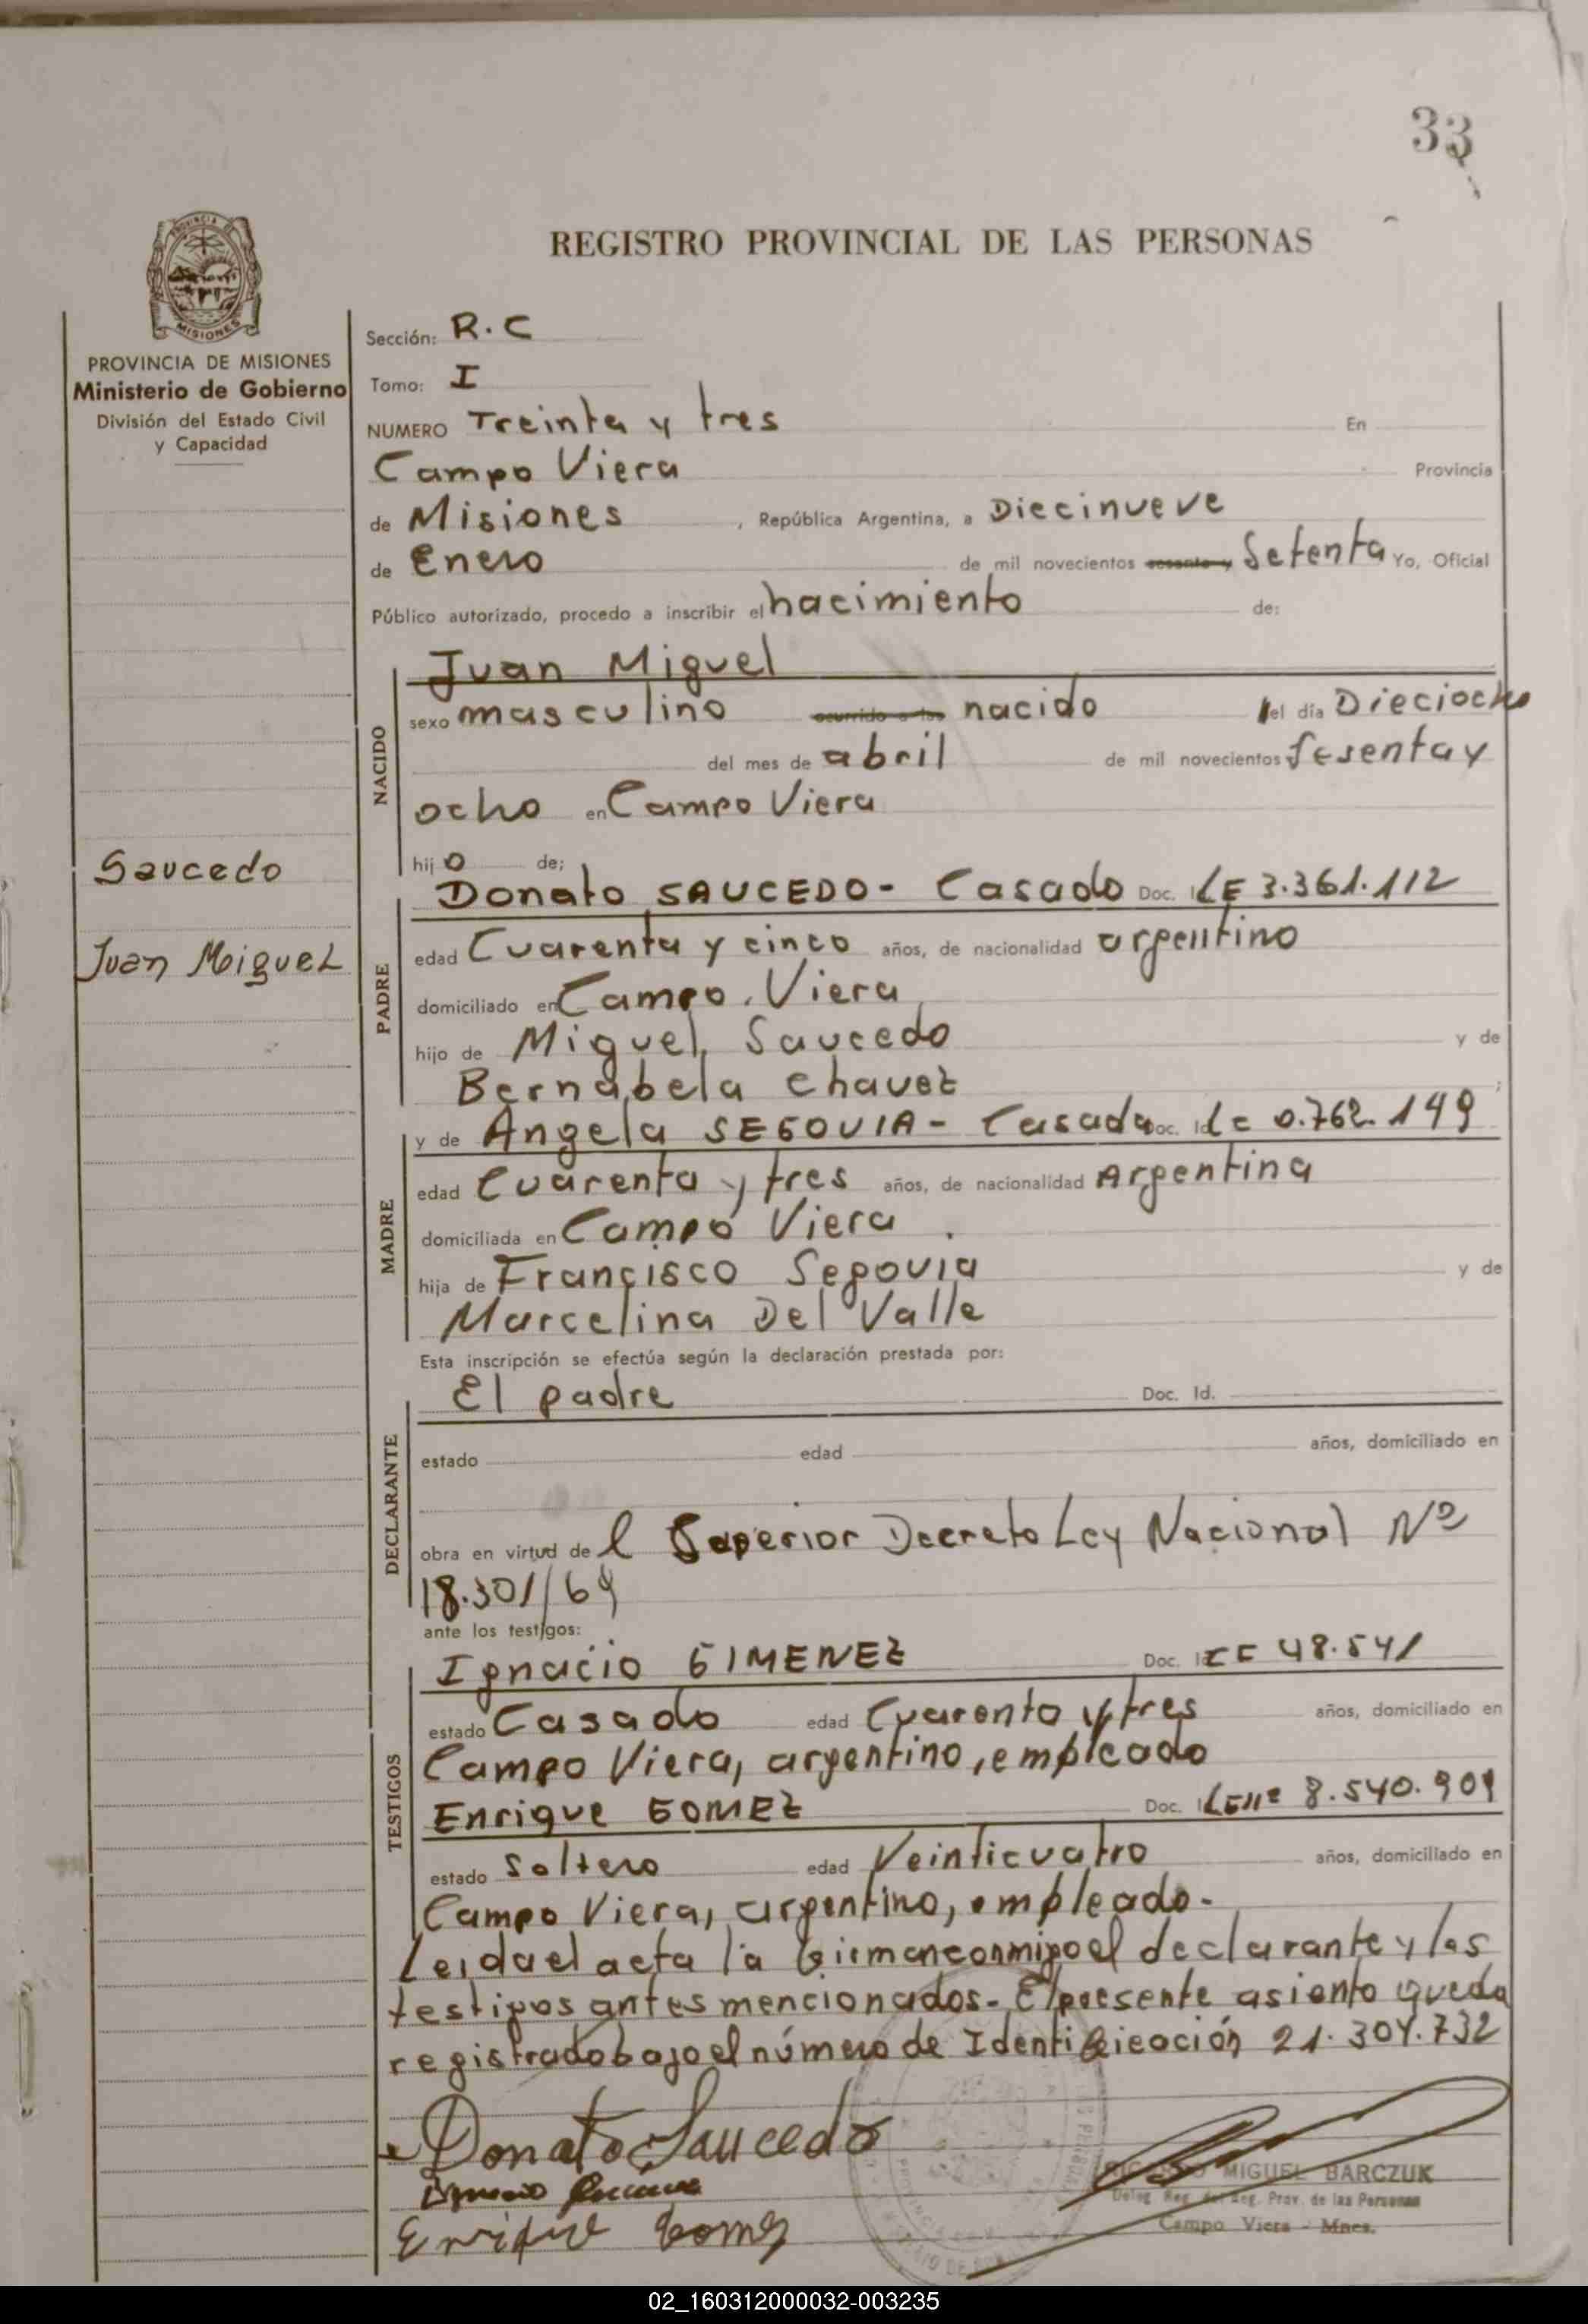 33
REGISTRO PROVINCIAL DE LAS PERSONAS
PROVINCIA
MISIONES
PROVINCIA DE MISIONES
Ministerio de Gobierno
División del Estado Civil
y Capacidad
Sección: R.C
Tomo: I
NUMERO Treinta y tres En
Campo Viera Provincia
de Misiones, República Argentina, a Diecinueve
de Enero de mil novecientos sesenta y Setenta Yo, Oficial
Público autorizado, procedo a inscribir el nacimiento de:
Juan Miguel
NACIDO
sexo masculino ocurrido a las nacido el día Dieciocho
del mes de abril de mil novecientos Sesenta y
ocho en Campo Viera
hijo de;
Saucedo
Juan Miguel
Donato SAUCEDO - Casado Doc. LE 3.361.112
PADRE
edad Cuarenta y cinco años, de nacionalidad argentino
domiciliado en Campo Viera
hijo de Miguel Saucedo y de
Bernabela Chavez
y de Angela SEGOVIA - Casada Doc. Id 0.762.149
MADRE
edad Cuarenta y tres años, de nacionalidad Argentina
domiciliada en Campo Viera
hija de Francisco Segovia y de
Marcelina Del Valle
Esta inscripción se efectúa según la declaración prestada por:
El padre Doc. Id.
DECLARANTE
estado edad años, domiciliado en
obra en virtud del Superior Decreto Ley Nacional Nº
18.301/69
ante los testigos:
Ignacio GIMENEZ Doc. 48.541
TESTIGOS
estado Casado edad Cuarenta y tres años, domiciliado en
Campo Viera, argentino, empleado
Enrique GOMEZ Doc. LE nº 8.540.909
estado Soltero edad Veinticuatro años, domiciliado en
Campo Viera, argentino, empleado-
Leida el acta la firman conmigo el declarante y los
testigos antes mencionados- El presente asiento queda
registrado bajo el número de Identificación 21.304.732
Donato Saucedo
Enrique Gomez
MIGUEL BARCZUK
Deleg. Reg. del Reg. Prov. de las Personas
Campo Viera - Mnes.
02_160312000032-003235